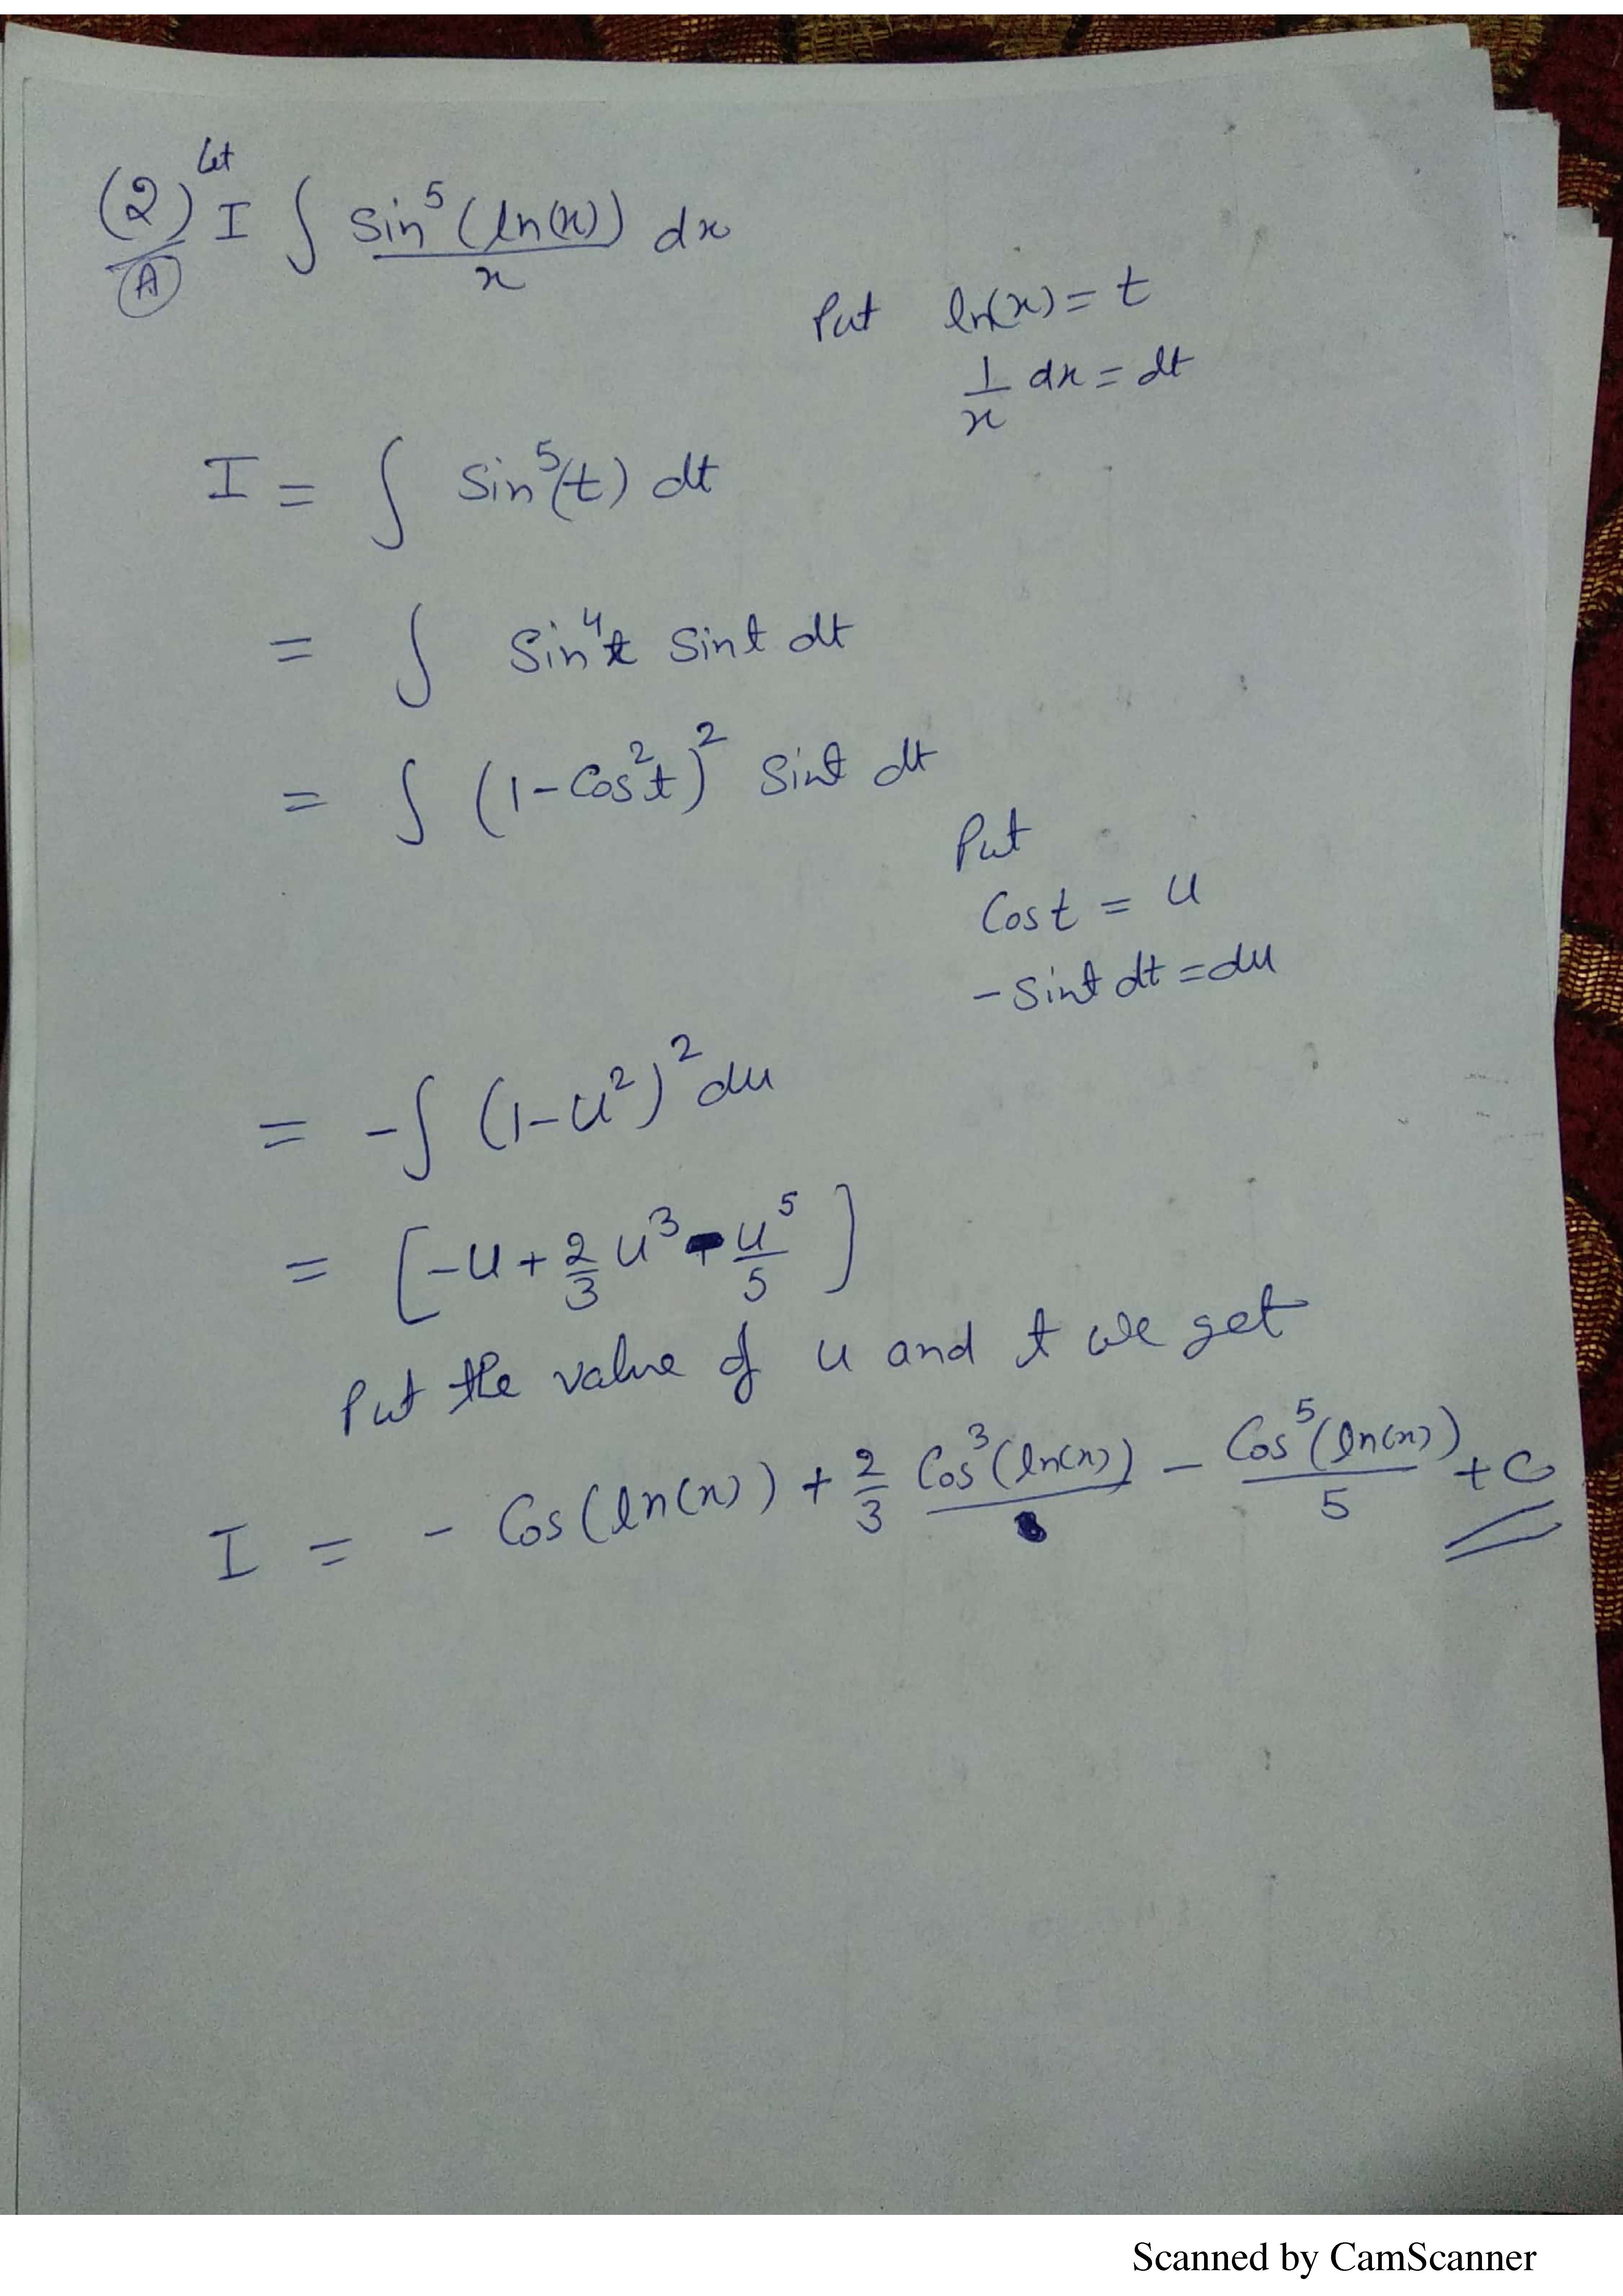 Let
(2) I ∫ sin⁵(ln(x))/x dx
A
Put ln(x) = t
1/x dx = dt
I = ∫ sin⁵(t) dt
= ∫ sin⁴t sint dt
= ∫ (1-cos²t)² sint dt
Put
Cos t = u
- sint dt = du
= -∫ (1-u²)² du
= [-u + 2/3 u³ - u⁵/5]
Put the value of u and t we get
I = - Cos(ln(x)) + 2/3 Cos³(ln(x)) - Cos⁵(ln(x))/5 + C
Scanned by CamScanner